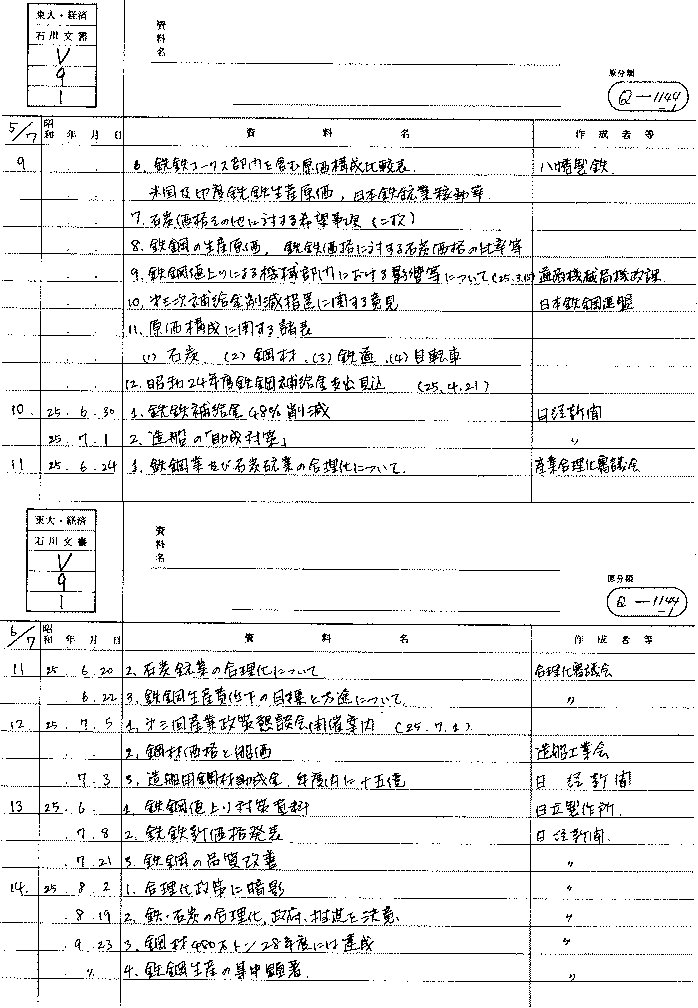 東大・経済
石川文書
V
9
1
資料名
原分類
Q-1144
5/7 昭和 年 月 日 資料名 作成者等
9 6. 銑鉄コークス部内を含む原価構成比較表 八幡製鉄
米国及印度銑鉄生産原価，日本鉄鉱業稼動率
7. 石炭価格その他に対する希望事項（二枚）
8. 鉄鋼の生産原価，銑鉄価格に対する石炭価格の比率等
9. 鉄鋼値上りによる機械部内における影響等について 通商機械局機政課
10. 第三次補給金削減措置に関する意見 日本鉄鋼連盟
11. 原価構成に関する諸表
(1) 石炭 (2) 鋼材 (3) 鉄道 (4) 自転車
12. 昭和24年度鉄鋼補給金支出見込 (25.4.21)
10. 25. 6. 30 1. 銑鉄補給金48%削減 日経新聞
25. 7. 1 2. 造船の「助成対策」 〃
11 25. 6. 24 1. 鉄鋼業及び石炭砿業の合理化について 産業合理化審議会
東大・経済
石川文書
V
9
1
資料名
原分類
Q-1144
6/7 昭和 年 月 日 資料名 作成者等
11 25 6. 20 2. 石炭鉱業の合理化について 合理化審議会
6. 22 3. 鉄鋼生産費低下の目標と方途について 〃
12. 25. 7. 5 1. 第三回産業政策懇談会開催案内 (25.7.1)
2. 鋼材価格と船価 造船工業会
7. 3 3. 造船用鋼材助成金，年度内に十五億 日経新聞
13 25. 6. 1. 鉄鋼値上り対策資料 日立製作所.
7. 8 2. 銑鉄新価格発表 日経新聞.
7. 21 3. 鉄鋼の品質改善 〃
14. 25 8. 2 1. 合理化政策に暗影 〃
8 19 2. 鉄・石炭の合理化，政府，推進を決意 〃
9. 23 3. 鋼材480万トン28年度には達成 〃
〃 4. 鉄鋼生産の集中顕著 〃